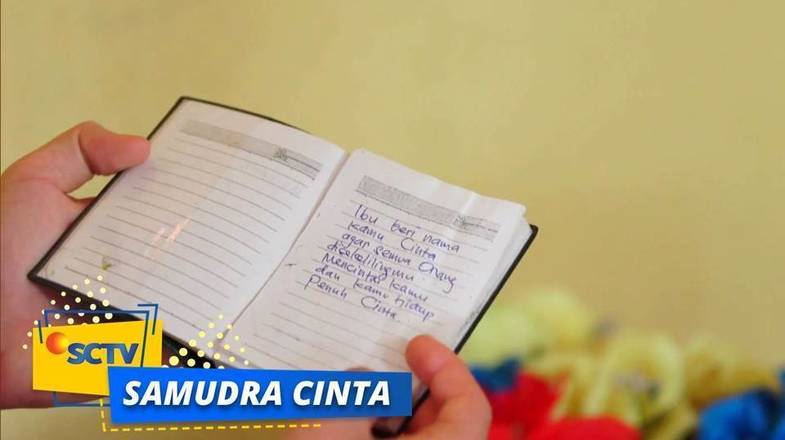 Ibu beri nama
kamu Cinta
agar semua Orang
disekelilingmu
Mencintai kamu
dan kamu hidup
Penuh Cinta.
SCTV
SAMUDRA CINTA